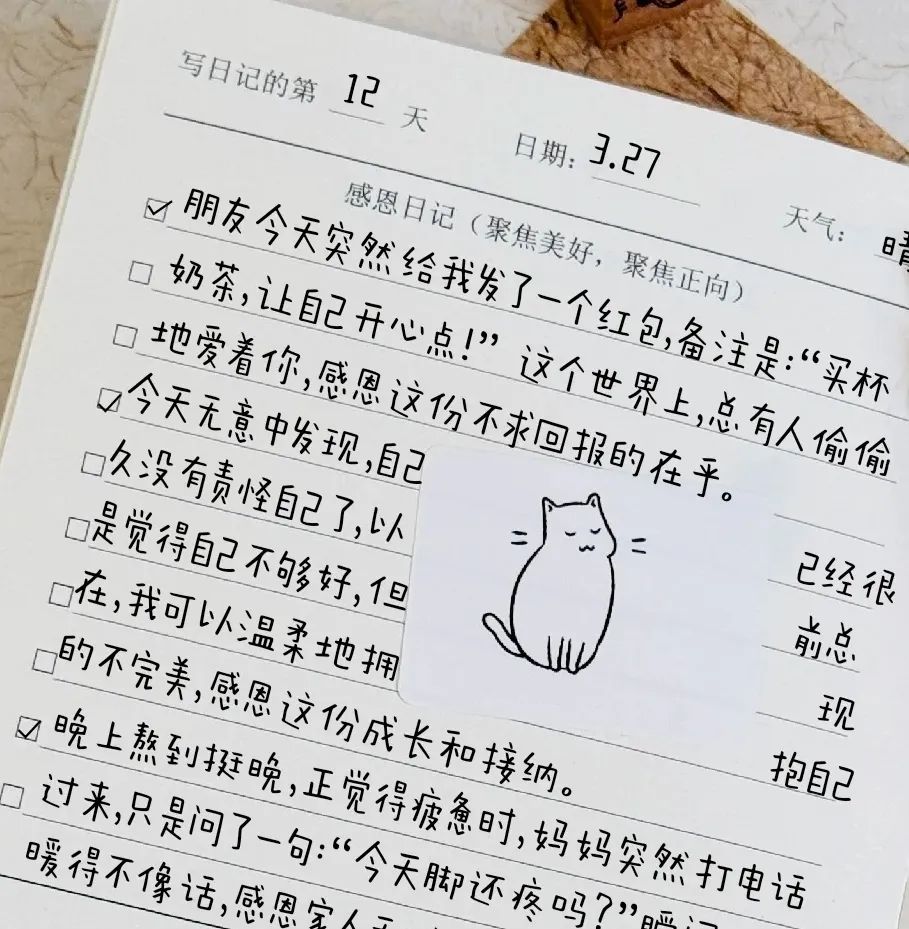 写日记的第 12 天 日期: 3.27 天气: 晴
感恩日记(聚焦美好,聚焦正向)
朋友今天突然给我发了一个红包,备注是:“买杯
奶茶,让自己开心点!” 这个世界上,总有人偷偷
地爱着你,感恩这份不求回报的在乎。
今天无意中发现,自己 己经很
久没有责怪自己了,以 前总
是觉得自己不够好,但 现
在,我可以温柔地拥 抱自己
的不完美,感恩这份成长和接纳。
晚上熬到挺晚,正觉得疲惫时,妈妈突然打电话
过来,只是问了一句:“今天脚还疼吗?”瞬间
暖得不像话,感恩家人